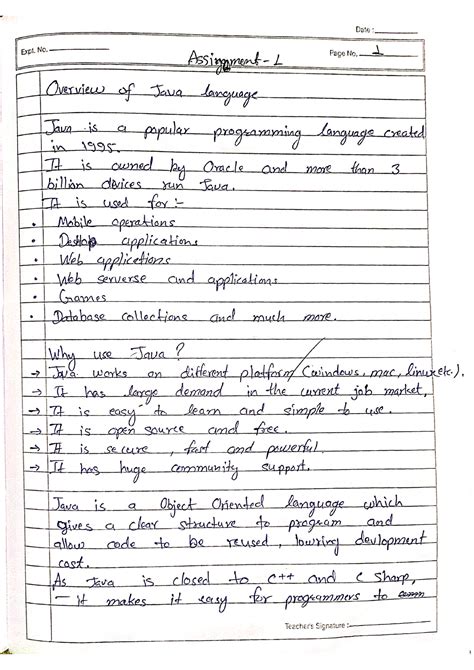 Date :
Expt. No.
Page No. 1
Assignment - 1
Overview of Java language
Java is a popular programming language created
in 1995.
It is owned by Oracle and more than 3
billion devices run Java.
It is used for :-
• Mobile operations
• Desktop applications
• Web applications
• Web serverse and applications
• Games
• Database collections and much more.
Why use Java ?
→ Java works on different platform (windows, mac, linux etc.).
→ It has large demand in the current job market,
→ It is easy to learn and simple to use.
→ It is open source and free.
→ It is secure, fast and powerful.
→ It has huge community support.
Java is a Object Oriented language which
gives a clear structure to program and
allow code to be reused, lowring devlopment
cost.
As Java is closed to C++ and C Sharp,
— It makes it easy for programmers to comm
Teacher's Signature :